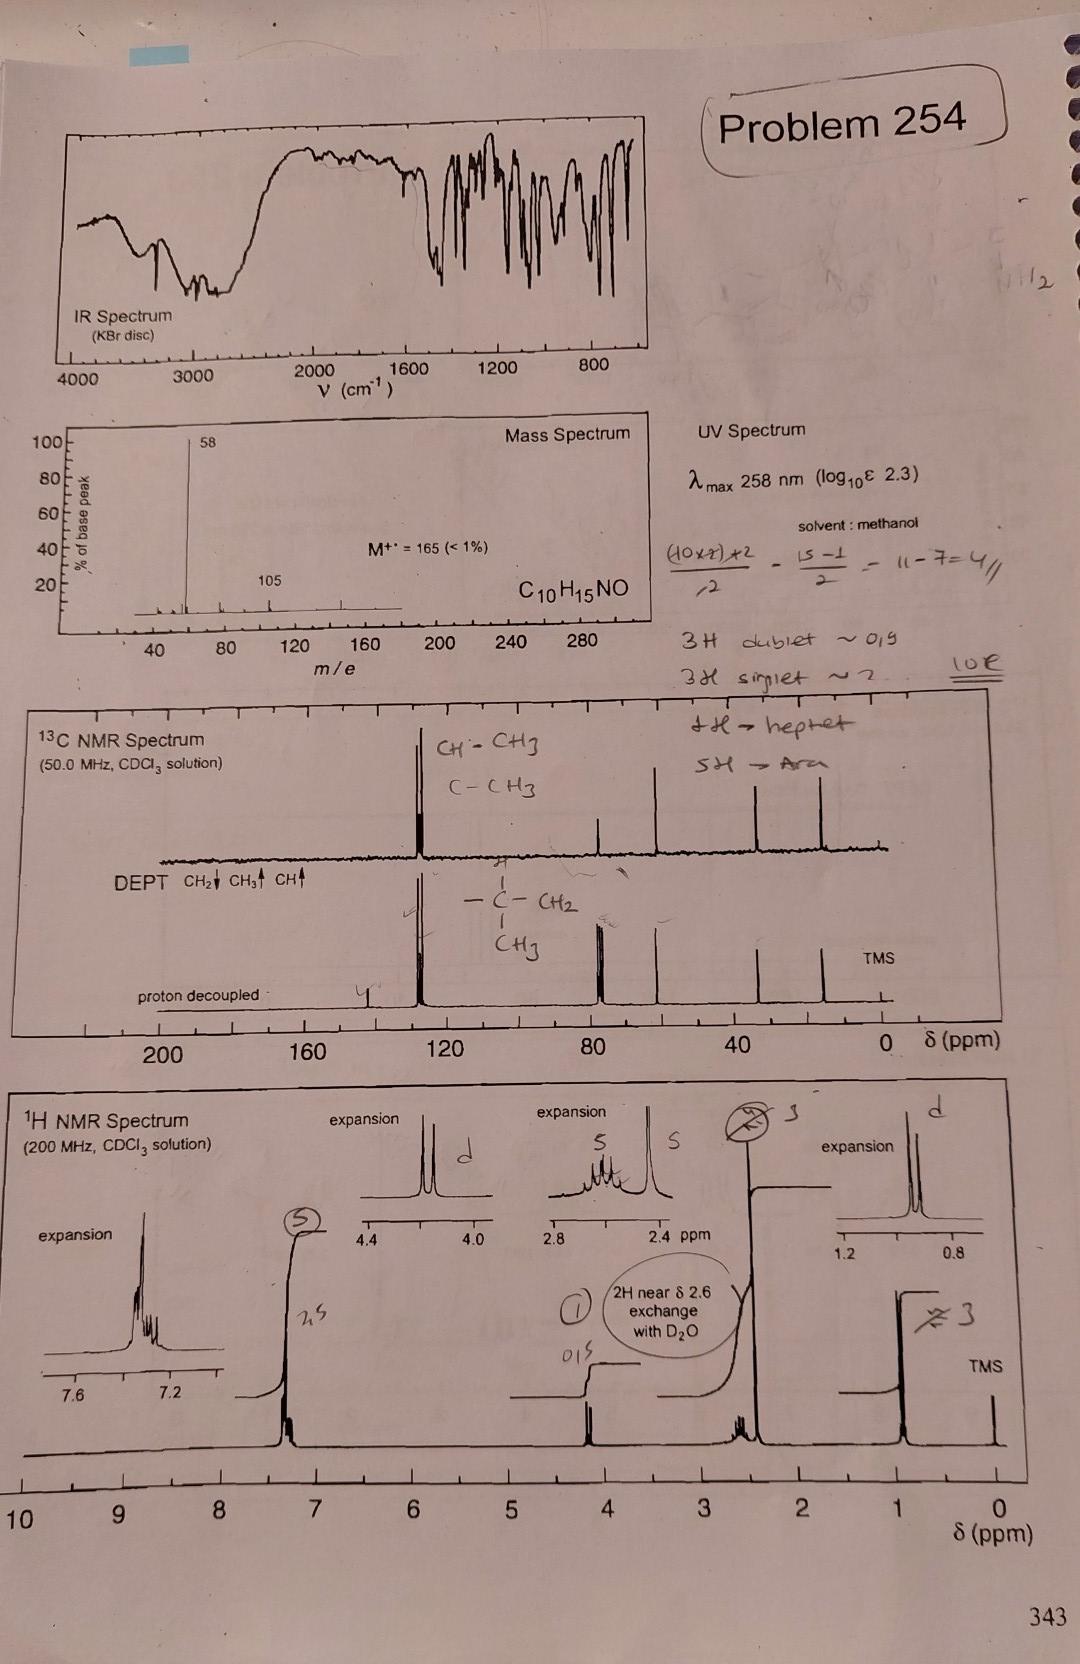 Problem 254
IR Spectrum
(KBr disc)
4000 3000 2000 1600 1200 800
ν (cm⁻¹)
100
80
60
40
20
% of base peak
58
105
Mass Spectrum
M⁺· = 165 (< 1%)
C₁₀H₁₅NO
40 80 120 160 200 240 280
m / e
UV Spectrum
λmax 258 nm (log₁₀ε 2.3)
solvent : methanol
(10x2)+2 / 2 - 15-1 / 2 = 11-7=4//
3H dublet ~ 0,9
3H singlet ~ 2
heptet
5H → Aro
¹³C NMR Spectrum
(50.0 MHz, CDCl₃ solution)
CH - CH₃
C - CH₃
DEPT CH₂↓ CH₃↑ CH↑
H
- C - CH₂
CH₃
proton decoupled
TMS
200 160 120 80 40 0 δ (ppm)
¹H NMR Spectrum
(200 MHz, CDCl₃ solution)
expansion
d
4.4 4.0
expansion
S
S
2.8 2.4 ppm
3
expansion
d
1.2 0.8
expansion
7.6 7.2
5
2,5
1
0,5
2H near δ 2.6
exchange
with D₂O
3
TMS
10 9 8 7 6 5 4 3 2 1 0
δ (ppm)
343